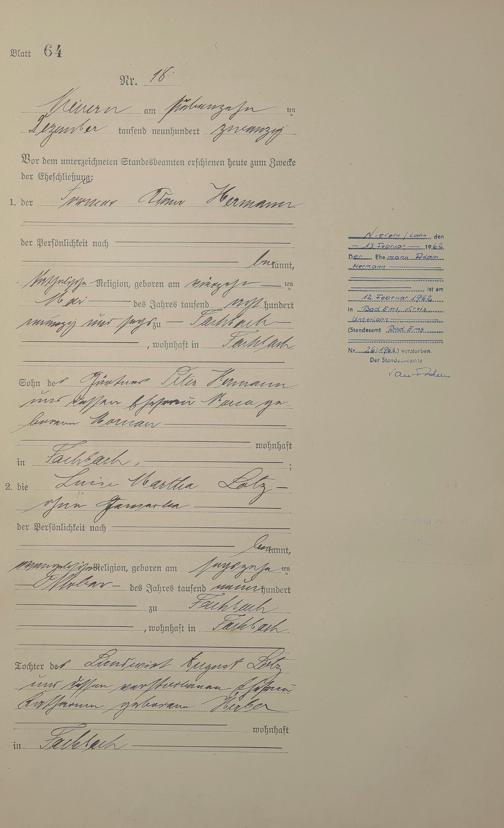 Blatt 64
Nr. 18
Nievern am siebenzehn ten
Dezember tausend neunhundert zwanzig
Vor dem unterzeichneten Standesbeamten erschienen heute zum Zwecke
der Eheschließung:
1. der Former Adam Hermann
der Persönlichkeit nach
bekannt,
katholischer Religion, geboren am vierzehn ten
Mai des Jahres tausend acht hundert
neunzig und sechs zu Fachbach
, wohnhaft in Fachbach
Sohn des Peter Hermann
und dessen Ehefrau Maria ge-
borene
wohnhaft
in Fachbach,
;
2. die Luise Martha Lotz
ohne Gewerbe
der Persönlichkeit nach
bekannt,
evangelischer Religion, geboren am sechzehn ten
Oktober des Jahres tausend neun hundert
zu Fachbach
, wohnhaft in Fachbach
Tochter des Landwirt August Lotz
und dessen verstorbenen Ehefrau
Katharina geborene
wohnhaft
in Fachbach
Nievern / Lahn, den
13. Februar 1962
Der Ehemann Adam
Hermann
ist am
12. Februar 1962
in Bad Ems, Kreis
Unterlahn
(Standesamt Bad Ems
Nr. 26/1962) verstorben.
Der Standesbeamte